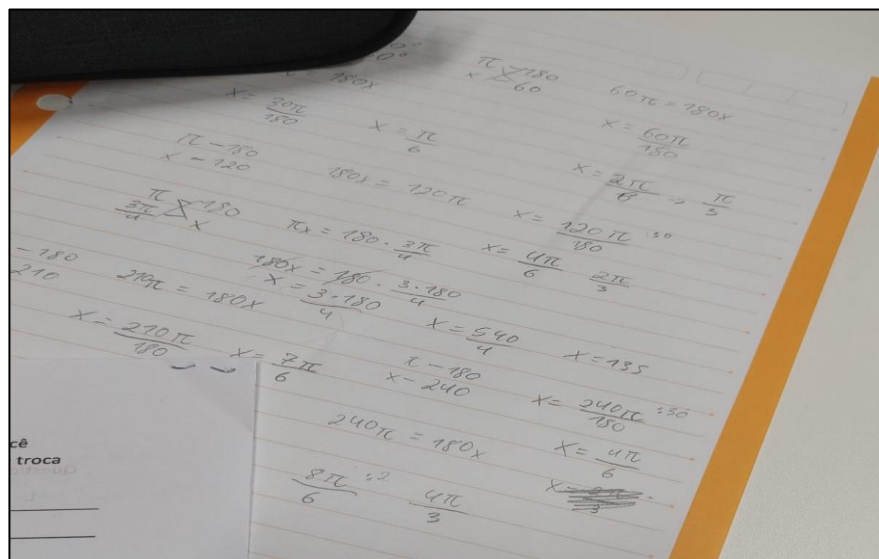 π 180
x 60
60π = 180x
= 180x
x = 30π/180
x = π/6
x = 60π/180
x = 2π/6 → π/3
π - 180
x - 120
180x = 120π
x = 120π/180 :30
x = 4π/6 2π/3
π 180
3π/4 x
πx = 180 . 3π/4
180x = 180 . 3.180/4
x = 3.180/4
x = 540/4
x = 135
- 180
210
210π = 180x
x = 210π/180
x = 7π/6
π - 180
x - 240
x = 240π/180 :30
240π = 180x
x = 4π/6
8π/6 :2 4π/3
cê
troca